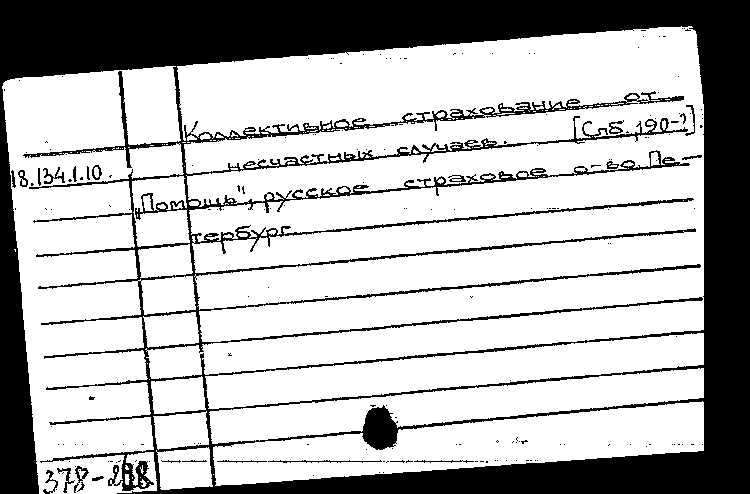 Коллективное страхование от
несчастных случаев. [Спб., 190-?].
18.134.1.10.
„Помощь", русское страховое о-во Пе-
тербург.
378-